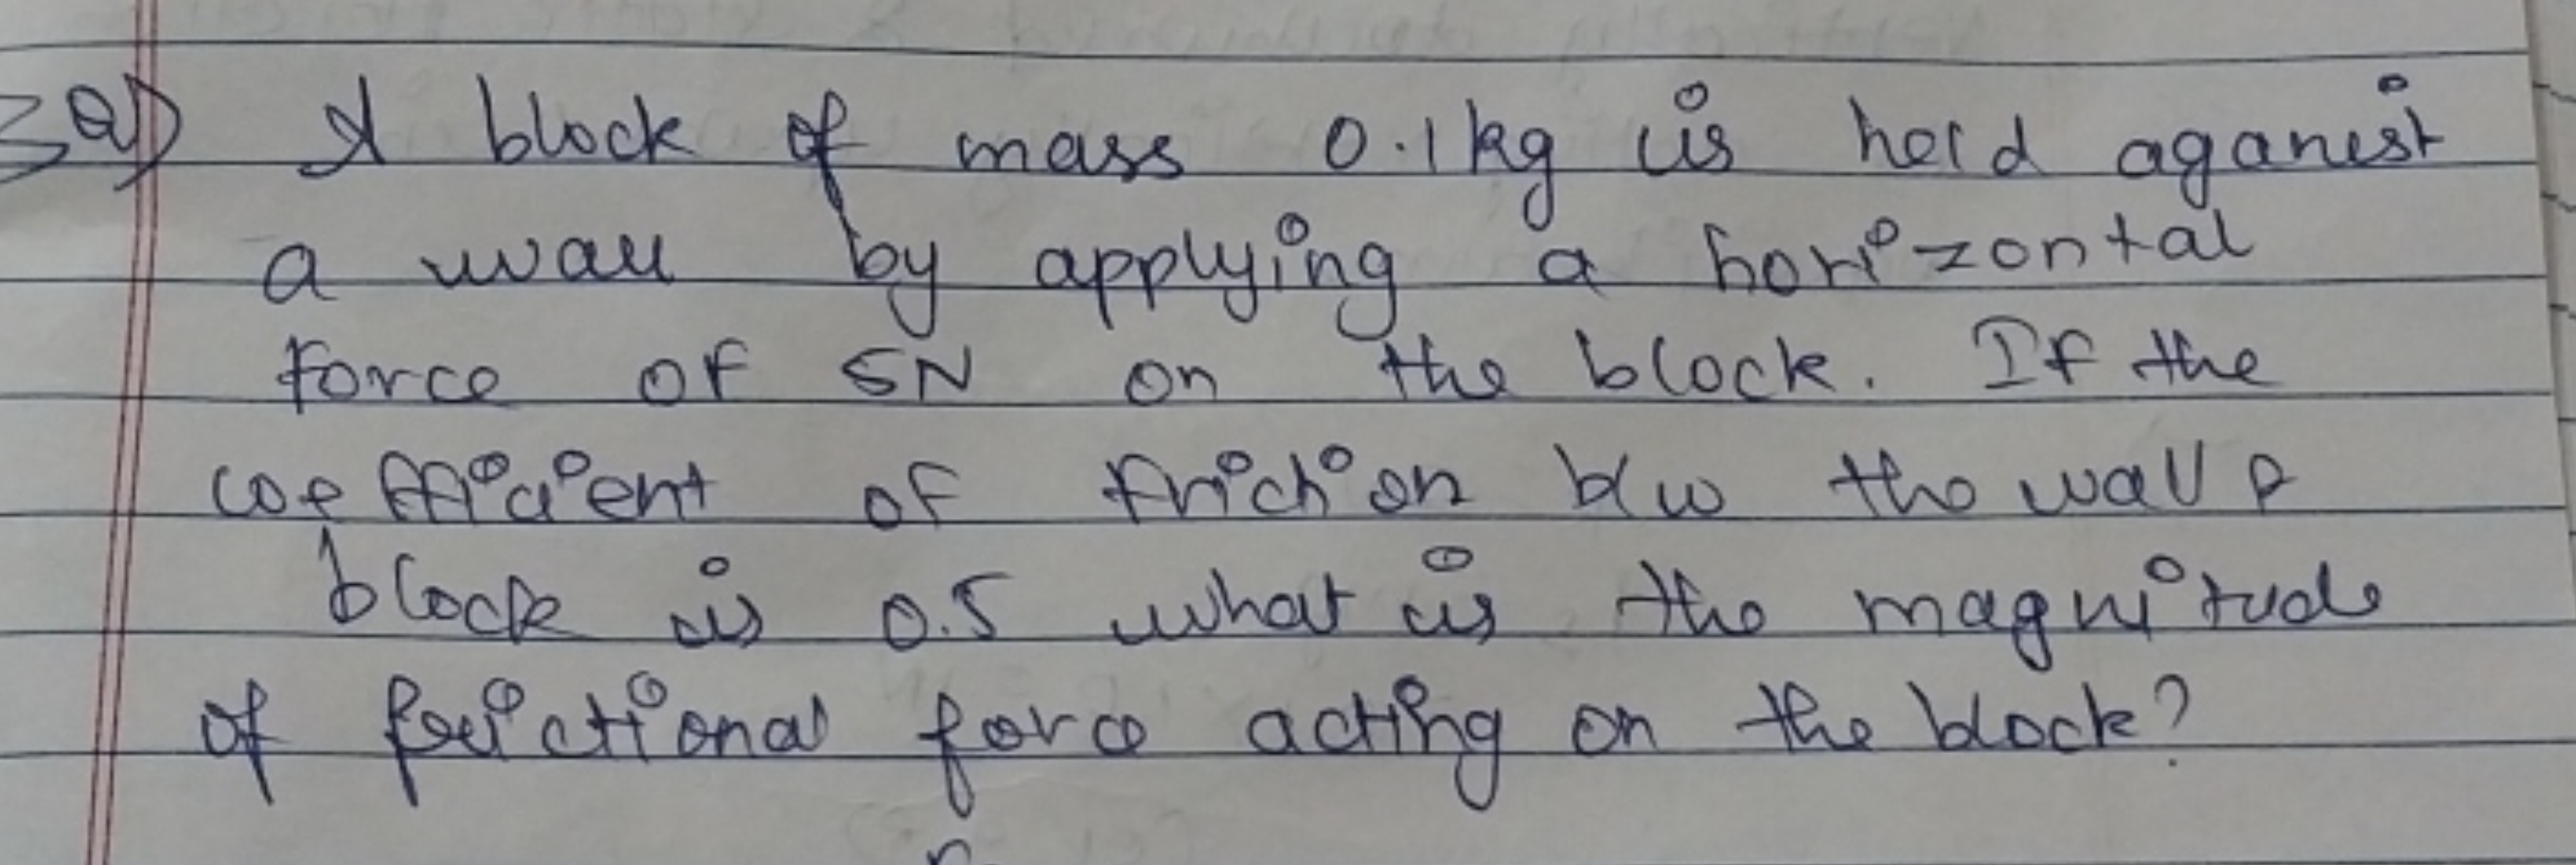 Q) A block of mass 0.1kg is held aganist
a wall by applying a horizontal
force of 5N on the block. If the
coefficient of friction b/w the wall &
block is 0.5 what is the magnitude
of frictional force acting on the block?